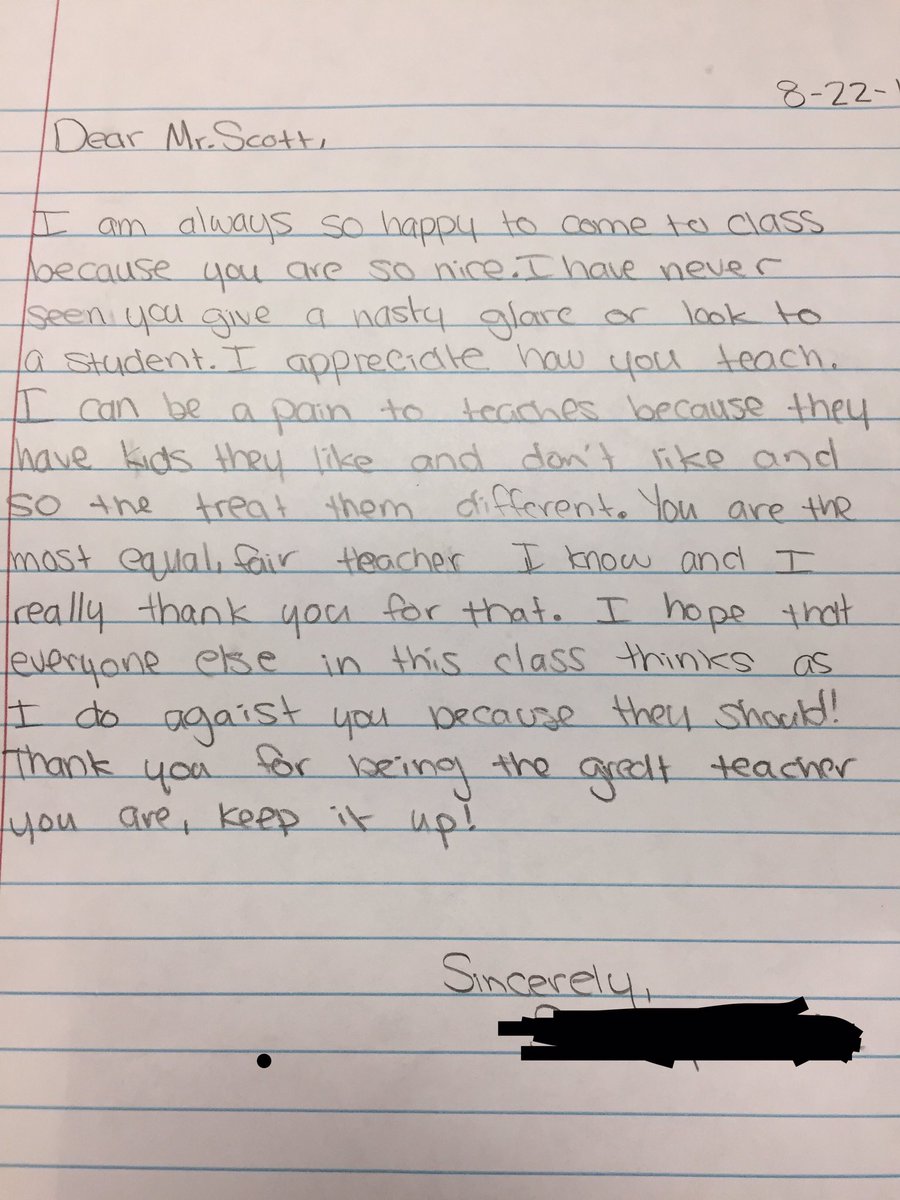 8-22-
Dear Mr. Scott,
I am always so happy to come to class
because you are so nice. I have never
seen you give a nasty glare or look to
a student. I appreciate how you teach.
I can be a pain to teaches because they
have kids they like and don't like and
so the treat them different. You are the
most equal, fair teacher I know and I
really thank you for that. I hope that
everyone else in this class thinks as
I do agaist you because they should!
Thank you for being the great teacher
you are, keep it up!
Sincerely,